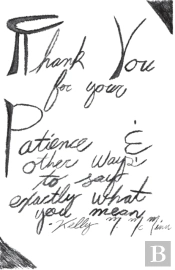 Thank You
for your
Patience &
other ways
to say
exactly what
you mean
- Kelly
B